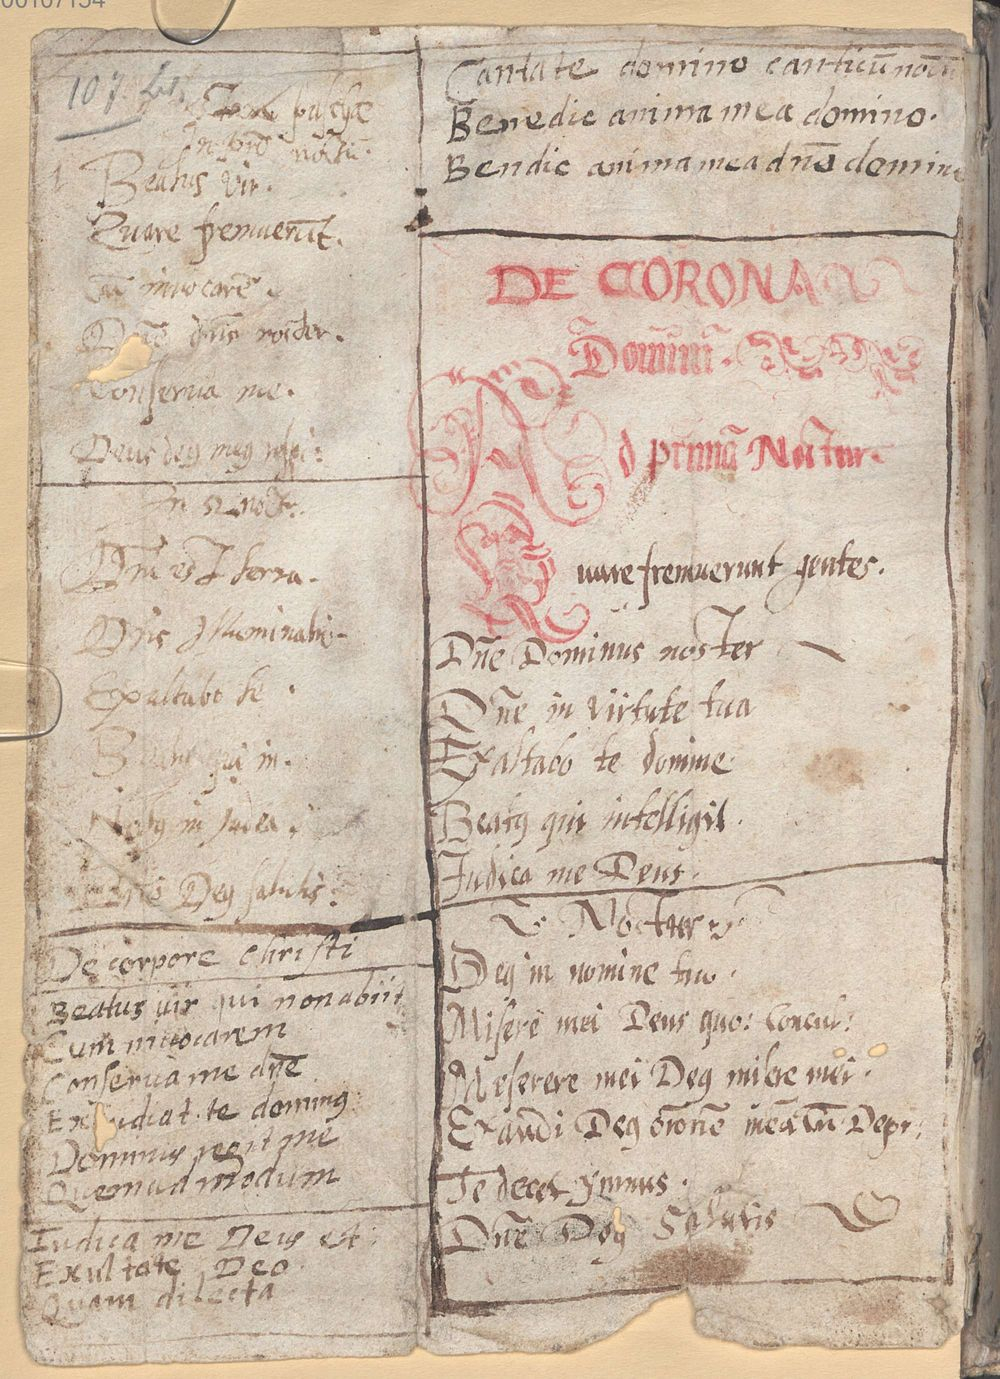 00167154
107.
paschae
In pro noctu.
1 Beatus vir.
Quare fremuerūt.
Cū invocarē.
Dñe dñs noster.
Conserva me.
Deus deg meg respi:
In 2 noct:
Dñi est terra.
Dñs Illuminatio
Exaltabo te.
Beatus qui in.
Notus in Judea.
Dñe Deg salutis:
De corpore christi
Beatus vir qui non abiit
Cum invocarem
Conserva me dñe
Exaudiat te doming
Dominus regit me
Quemadmodum
Iudica me Deus et
Exultate Deo
Quam dilecta
Cantate domino canticū novū
Benedic anima mea domino.
Bendic anima mea dño domine
DE CORONA
Domini.
Ad primā Noctur.
Quare fremuerunt gentes.
Dñe Dominus noster
Dñe in virtute tua
Exaltabo te domine
Beatg qui intelligit.
Iudica me Deus.
2 Noctur
Deg in nomine tuo.
Miserē mei Deus quo: concul:
Meserere mei Deg misere mei.
Exaudi Deg orōnē meā cū Depr:
Te decet ymnus.
Dñe Deg Salutis